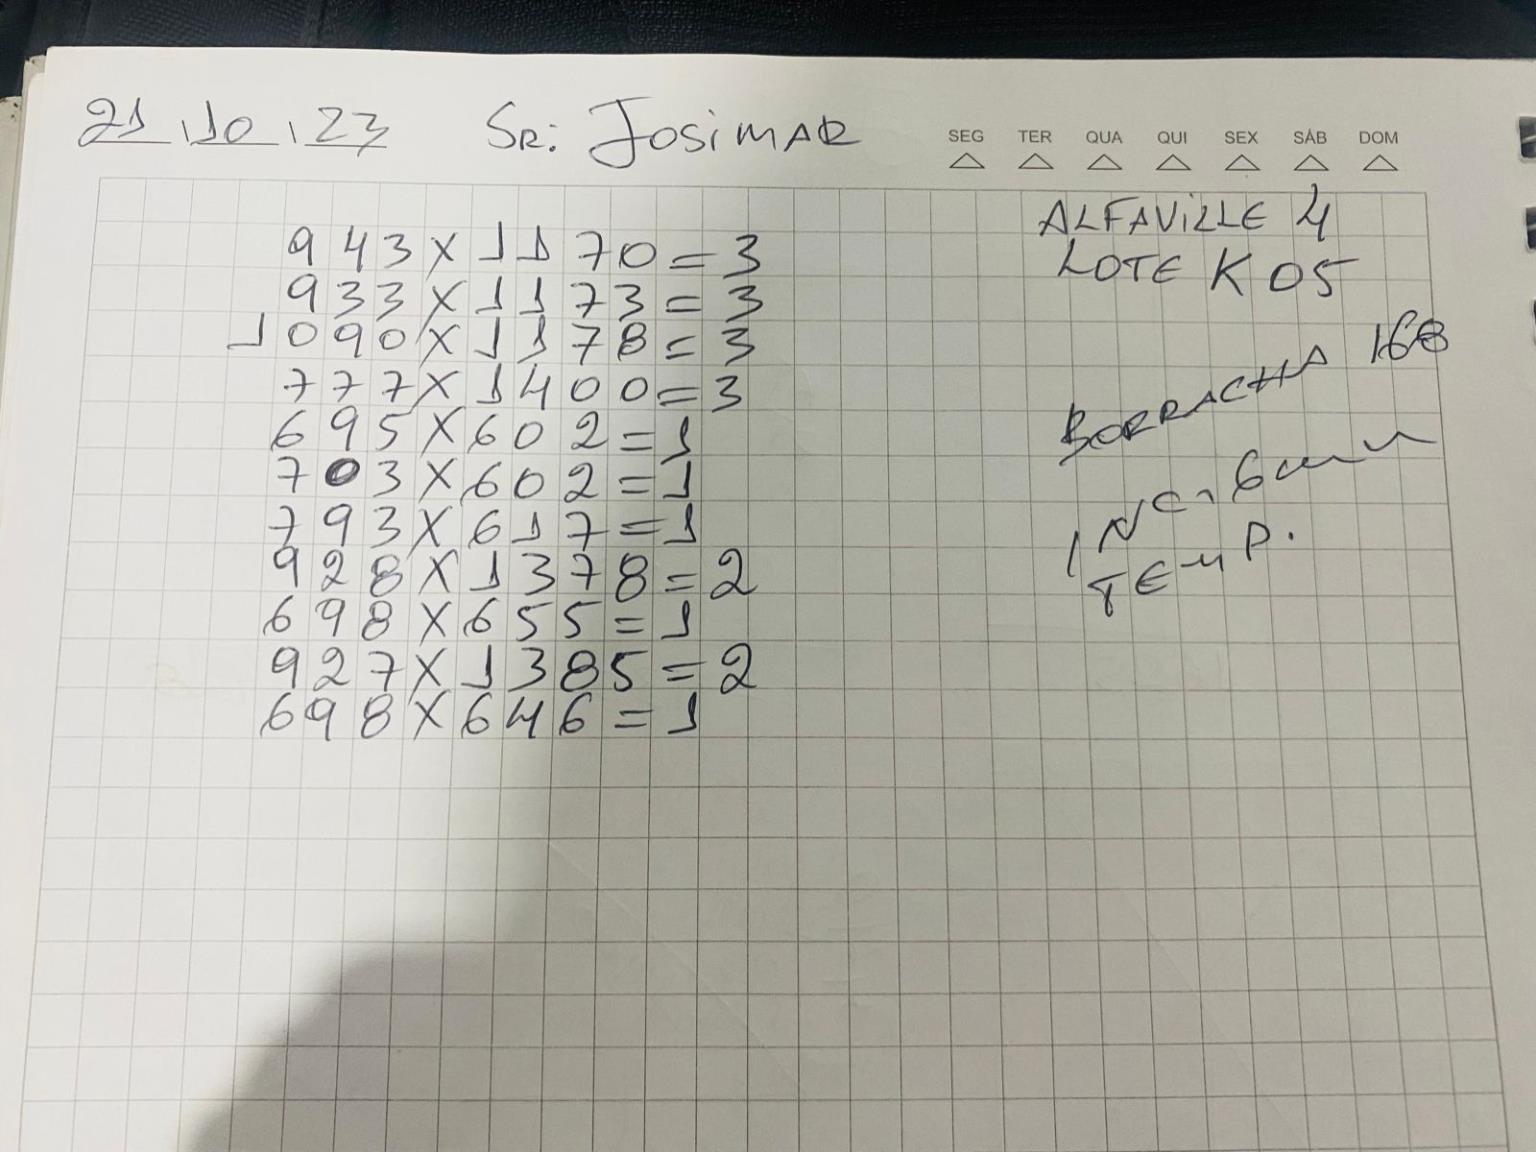 21.10.23 SR: JOSIMAR
SEG TER QUA QUI SEX SÁB DOM
943X1170=3
933X1173=3
1090X1178=3
777X1400=3
695X602=1
703X602=1
793X617=1
928X1378=2
698X655=1
927X1385=2
698X646=1
ALFAVILLE 4
LOTE K 05
BORRACHA 168
INC. 6mm
TEMP.